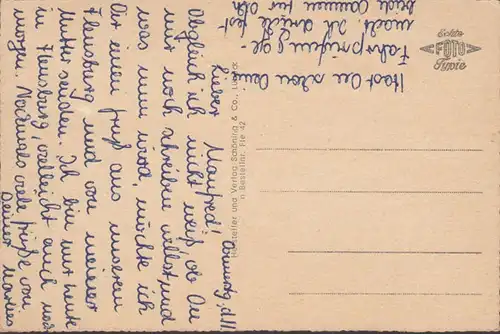 Sonntag, d. 11.
Lieber Manfred!
Obgleich ich nicht weiß, ob Du
mir noch schreiben willst und
was nun wird, möchte ich
Dir einen Gruß aus unserem
Flensburg und von meiner
Mutter senden. Ich bin nur heute
in Flensburg, vielleicht auch noch
morgen. Nochmals viele Grüße von
Deiner
Hast Du schon Deine
Fahrprüfung ge-
macht. Ich drücke fest
beide Daumen für Dich
Echte
FOTO
Hersteller und Verlag Schöning & Co., Lübeck
Bestellnr. Fle 42